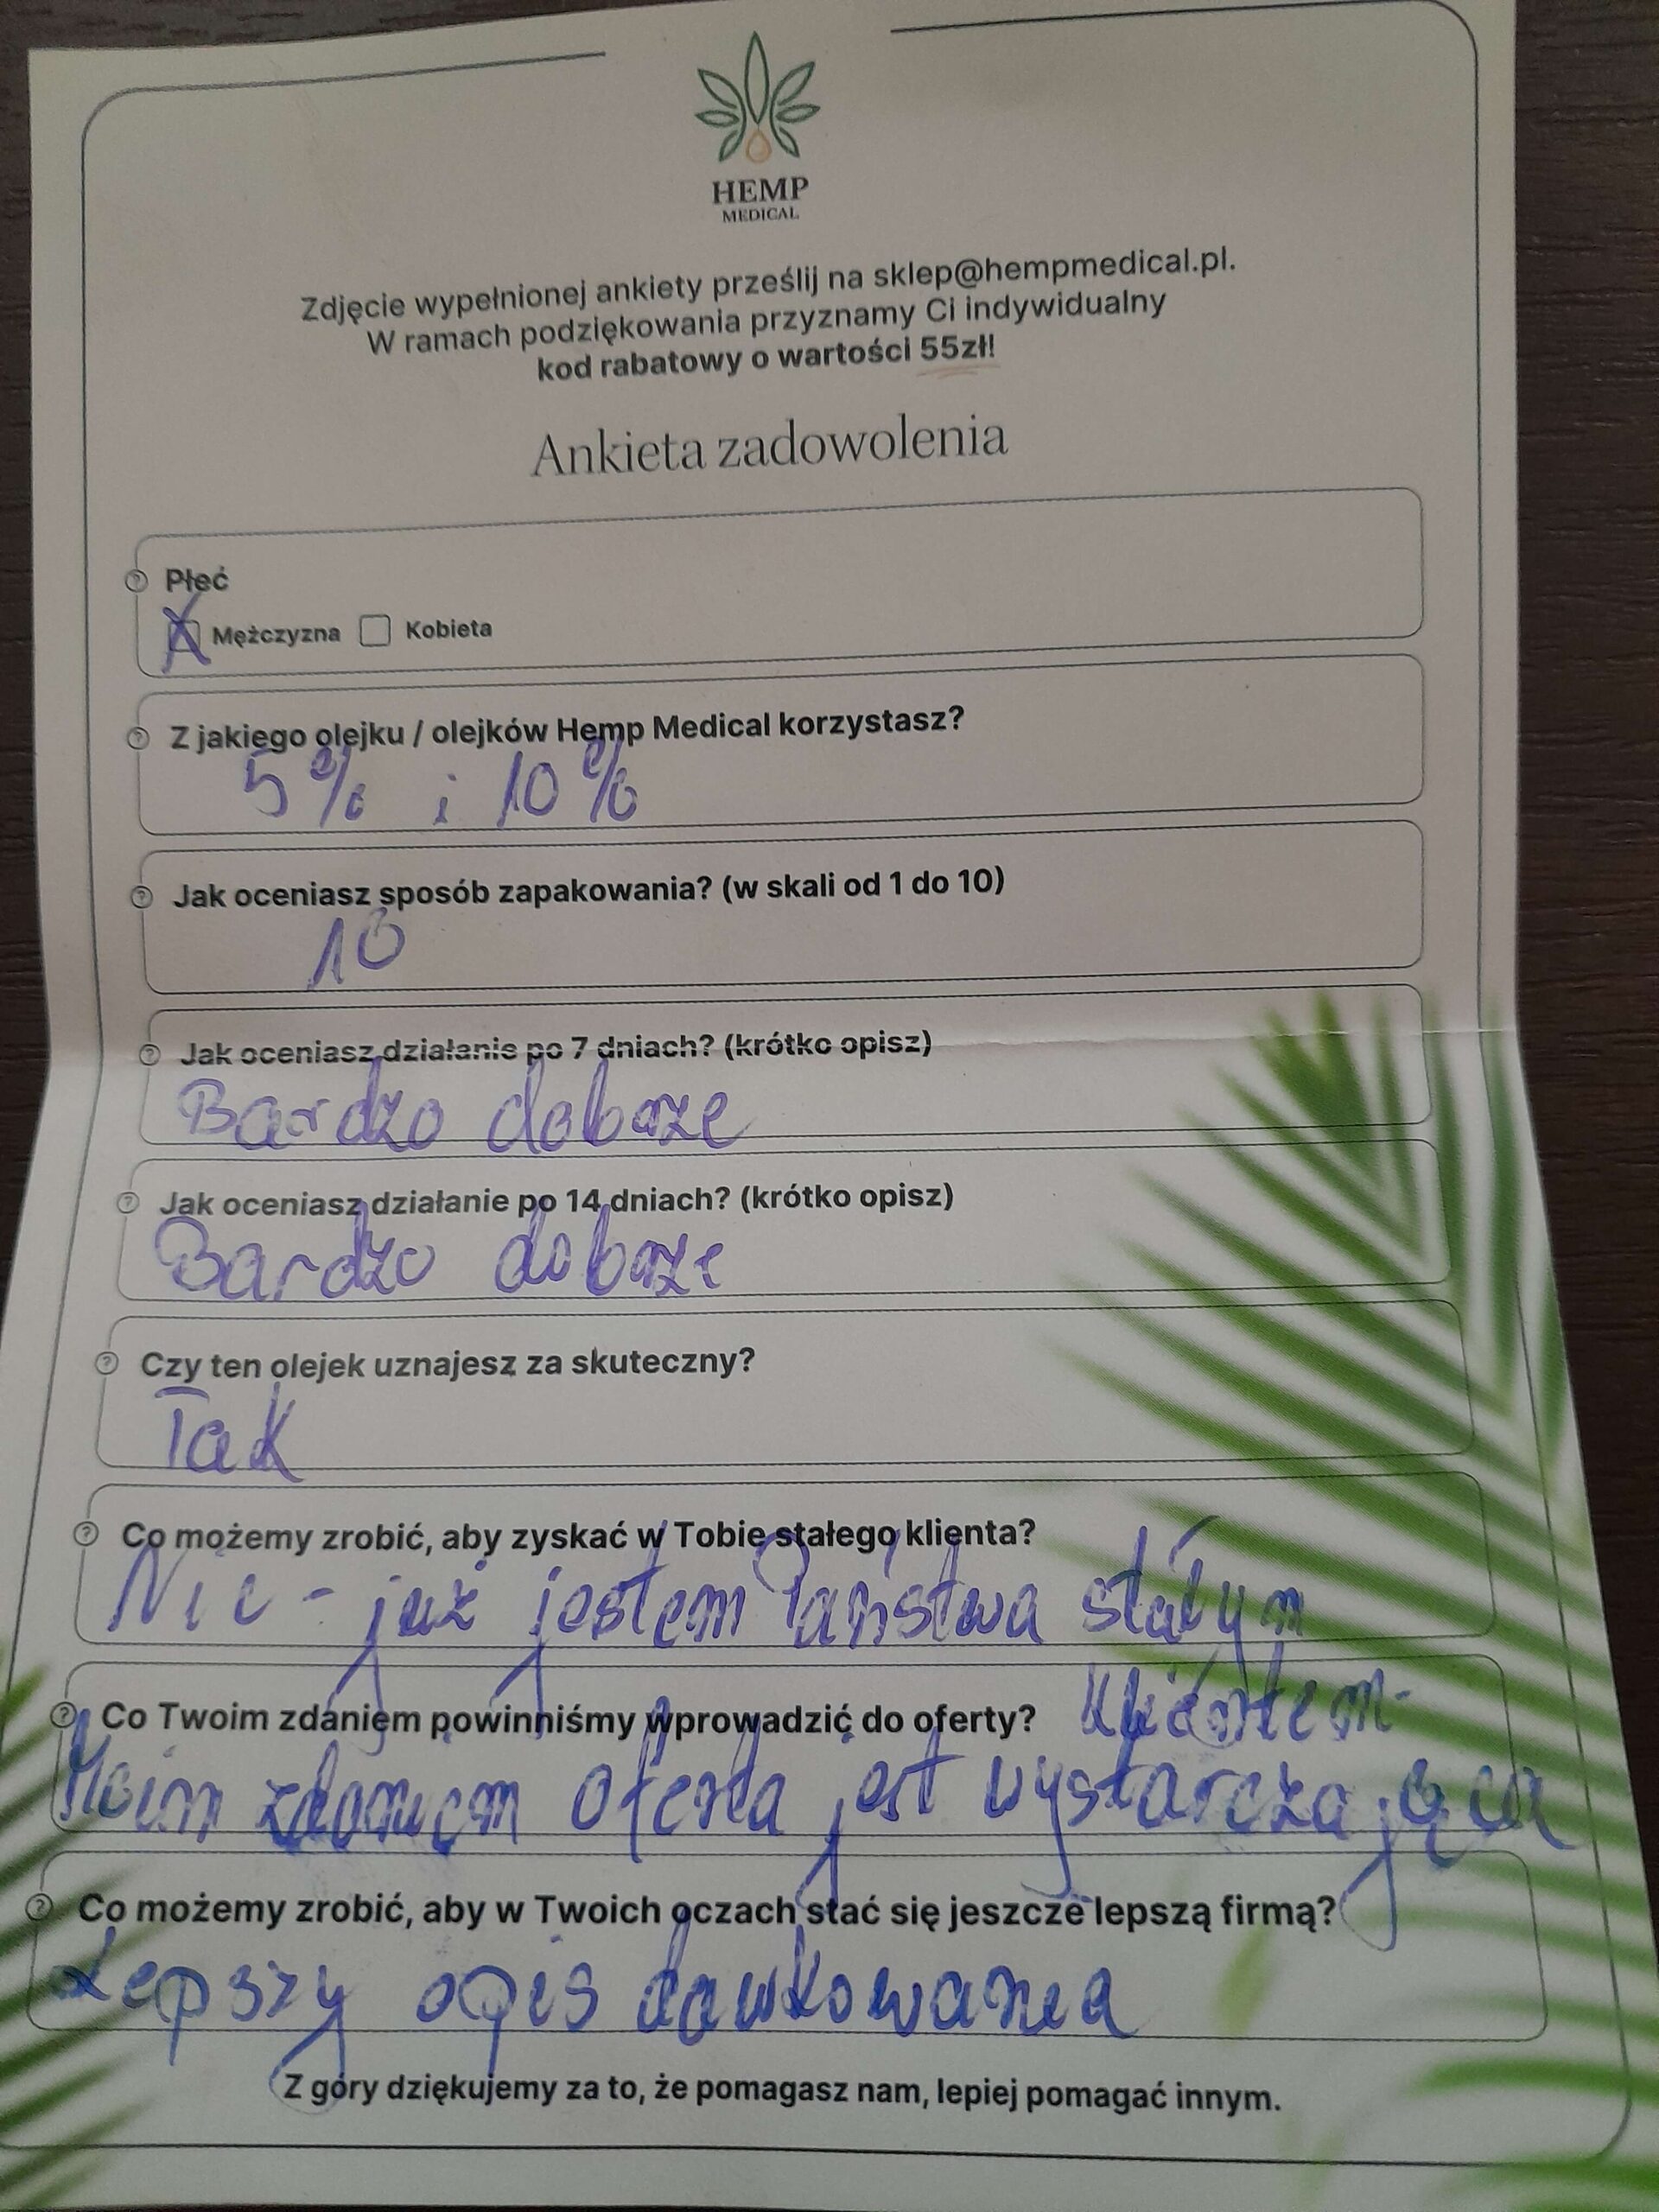 HEMP
MEDICAL
Zdjęcie wypełnionej ankiety prześlij na sklep@hempmedical.pl.
W ramach podziękowania przyznamy Ci indywidualny
kod rabatowy o wartości 55zł!
Ankieta zadowolenia
Płeć
X Mężczyzna Kobieta
Z jakiego olejku / olejków Hemp Medical korzystasz?
5% i 10%
Jak oceniasz sposób zapakowania? (w skali od 1 do 10)
10
Jak oceniasz działanie po 7 dniach? (krótko opisz)
Bardzo dobrze
Jak oceniasz działanie po 14 dniach? (krótko opisz)
Bardzo dobrze
Czy ten olejek uznajesz za skuteczny?
Tak
Co możemy zrobić, aby zyskać w Tobie stałego klienta?
Nic - już jestem Państwa stałym
klientem-
Co Twoim zdaniem powinniśmy wprowadzić do oferty?
Moim zdaniem oferta jest wystarczająca
Co możemy zrobić, aby w Twoich oczach stać się jeszcze lepszą firmą?
Lepszy opis dawkowania
Z góry dziękujemy za to, że pomagasz nam, lepiej pomagać innym.